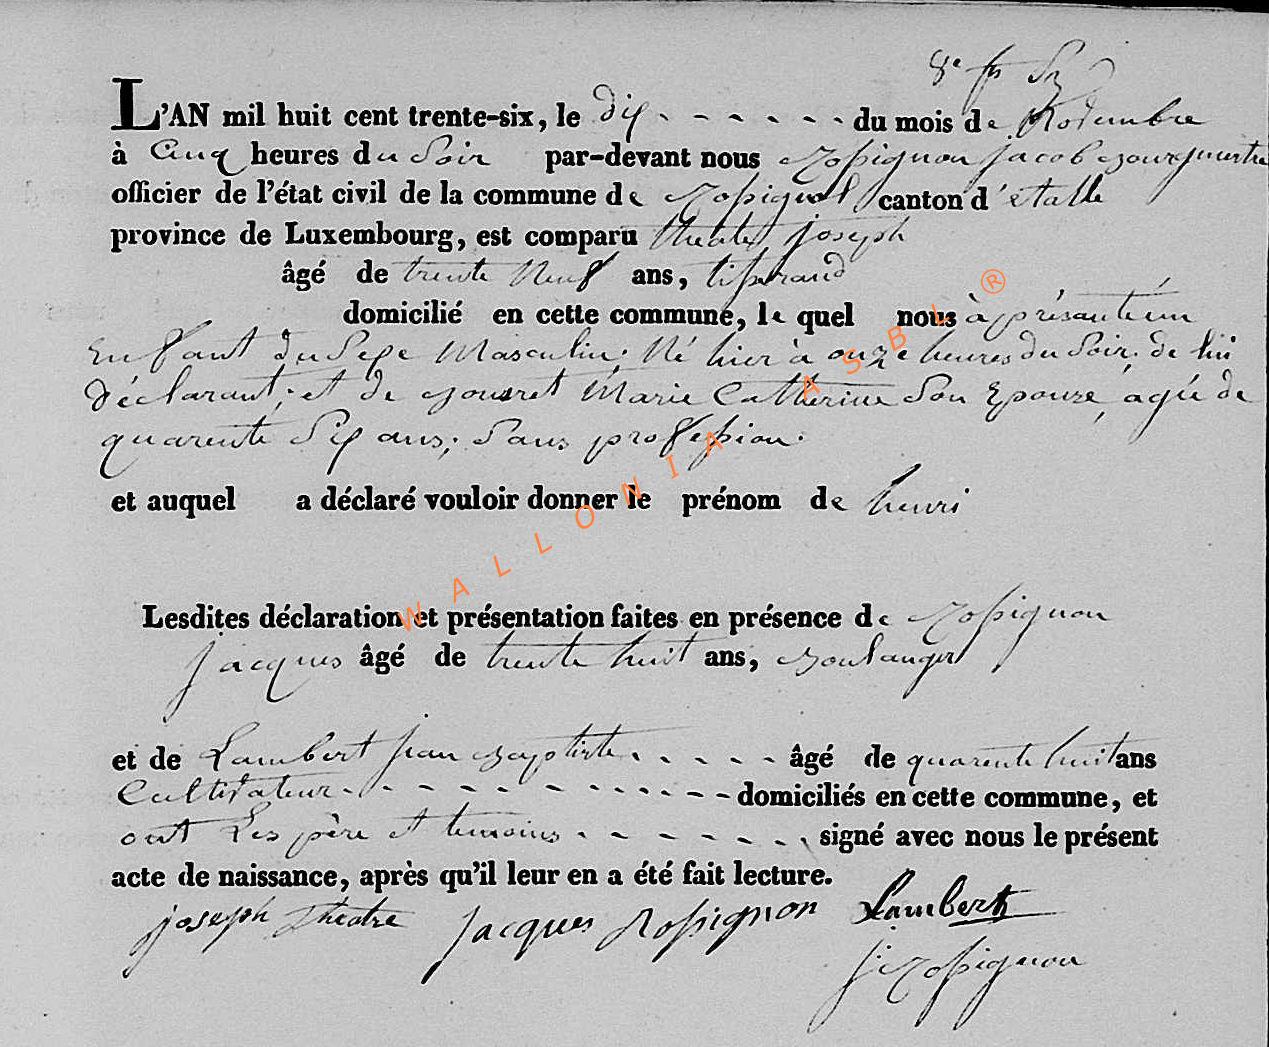 L'AN mil huit cent trente-six, le dix - - - - - - du mois de Novembre
à Cinq heures du Soir par-devant nous Rossignon Jacob Bourgmestre
officier de l'état civil de la commune de Rossignol canton d'étalle
province de Luxembourg, est comparu théatre, joseph
âgé de trente Neuf ans, tisserand
domicilié en cette commune, le quel nous à présenté un
Enfant du Sexe Masculin; Né hier à onze heures du Soir. de lui
déclarant; et de Marie Catherine Son Epouse, agée de
quarente Six ans; Sans profession.
et auquel a déclaré vouloir donner le prénom de henri
Lesdites déclaration et présentation faites en présence de Rossignon
jacques âgé de trente huit ans, Boulanger
et de Lambert jean Baptiste - - - - - âgé de quarente huit ans
Cultivateur - - - - - - - - - - domiciliés en cette commune, et
ont Les père et temoins - - - - - - - signé avec nous le présent
acte de naissance, après qu'il leur en a été fait lecture.
joseph théatre Jacques Rossignon Lambert
j: Rossignon
WALLONIA ASBL ®